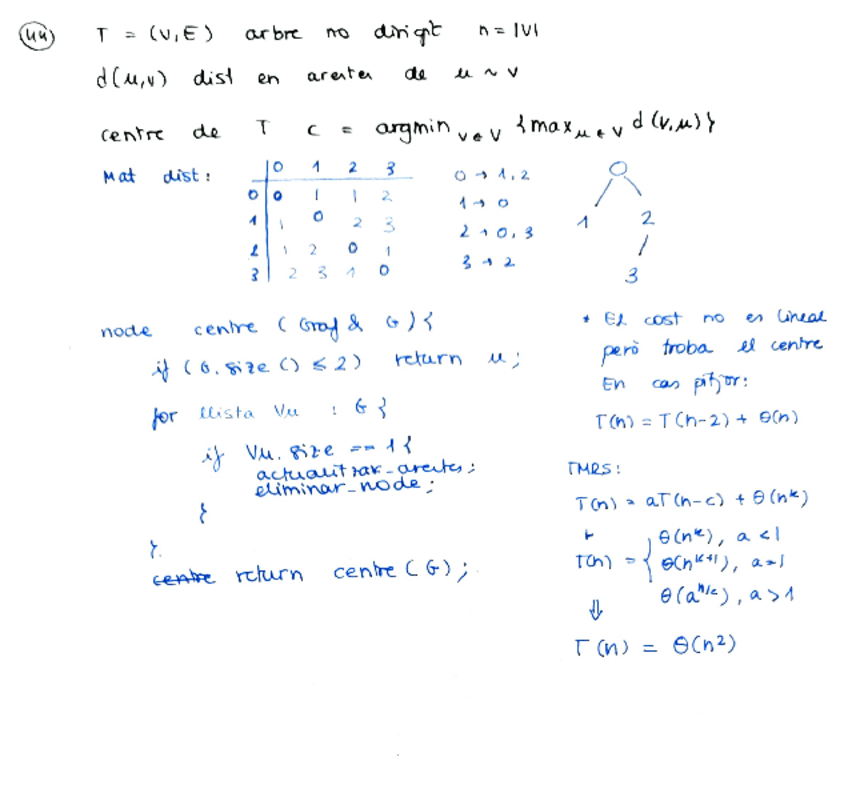 44) T = (V,E) arbre no dirigit n = |V|
d(u,v) dist en arestes de u ~ v
centre de T c = argmin v∈V {max u∈V d(v,u)}
Mat dist:
0 1 2 3
0 0 1 1 2
1 1 0 2 3
2 1 2 0 1
3 2 3 1 0
0 → 1,2
1 → 0
2 → 0,3
3 → 2
0
1 2
3
node centre (Graf & G) {
if (G.size() ≤ 2) return u;
for llista Vu : G {
if Vu.size == 1 {
actualitzar_arestes;
eliminar_node;
}
}.
centre return centre(G);
* El cost no es lineal
però troba el centre
En cas pitjor:
T(n) = T(n-2) + Θ(n)
TMRS:
T(n) = aT(n-c) + Θ(n^k)
T(n) = { Θ(n^k), a < 1
Θ(n^(k+1)), a = 1
Θ(a^(n/c)), a > 1
⇓
T(n) = Θ(n²)